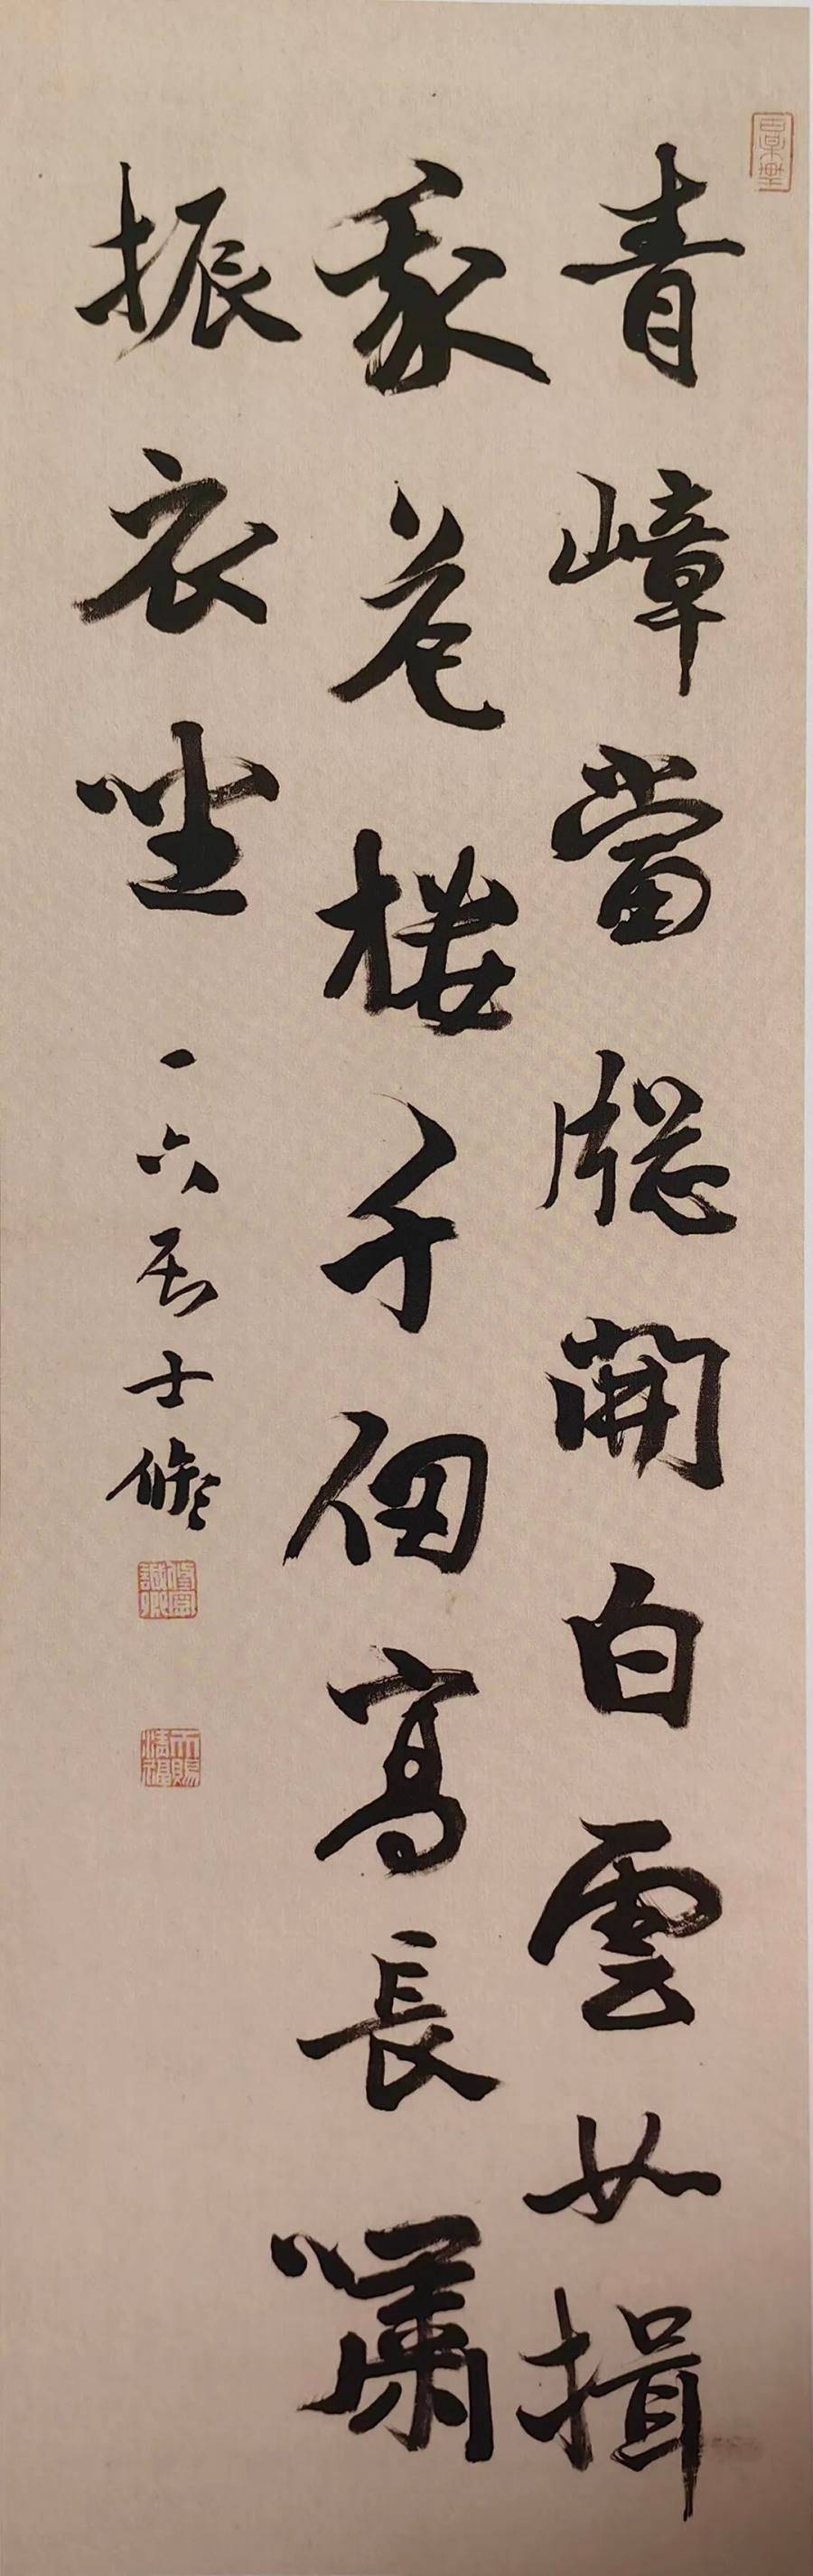 青嶂當牕開白雲如揖
我危樓千仞高長嘯
振衣坐
一六居士修